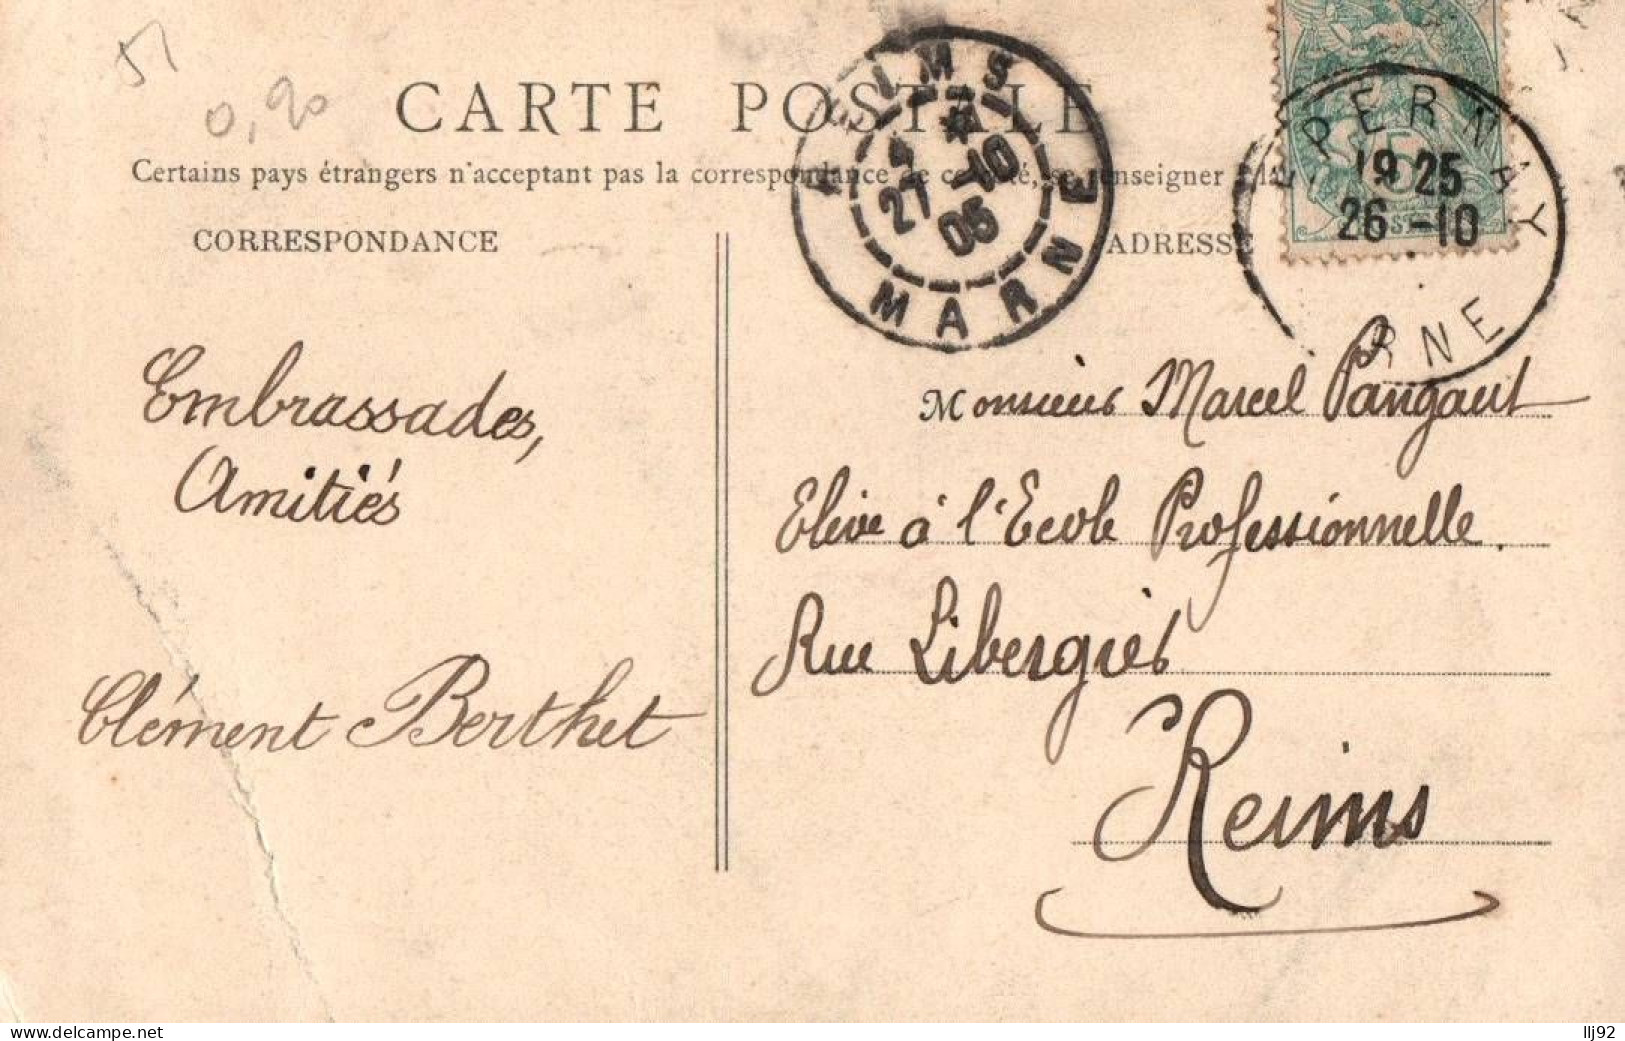 51
0,90
CARTE POSTALE
Certains pays étrangers n'acceptant pas la correspondance de ce côté, se renseigner à la
CORRESPONDANCE
ADRESSE
REIMS
27 -10
05
MARNE
EPERNAY
19 25
26 -10
RNE
Embrassades,
Amitiés
Clément Berthet
Monsieur Marcel Pangaut
Elève à l'Ecole Professionnelle.
Rue Libergiés
Reims
www.delcampe.net
llj92